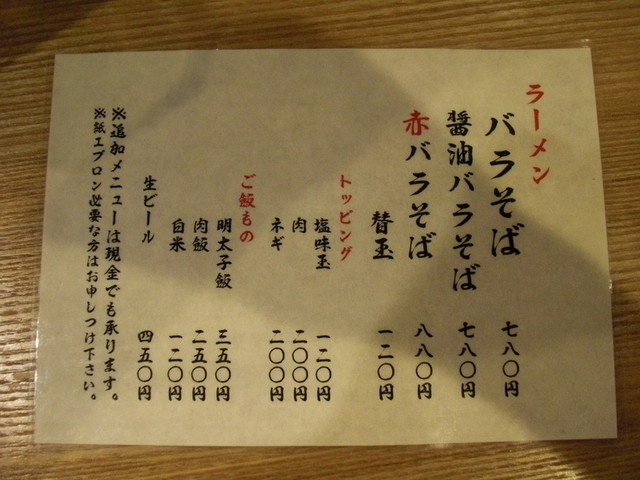 ラーメン
バラそば 七八〇円
醤油バラそば 七八〇円
赤バラそば 八八〇円
替玉 一二〇円
トッピング
塩味玉 一二〇円
肉 二〇〇円
ネギ 二〇〇円
ご飯もの
明太子飯 三五〇円
肉飯 二五〇円
白米 一二〇円
生ビール 四五〇円
※追加メニューは現金でも承ります。
※紙エプロン必要な方はお申しつけ下さい。